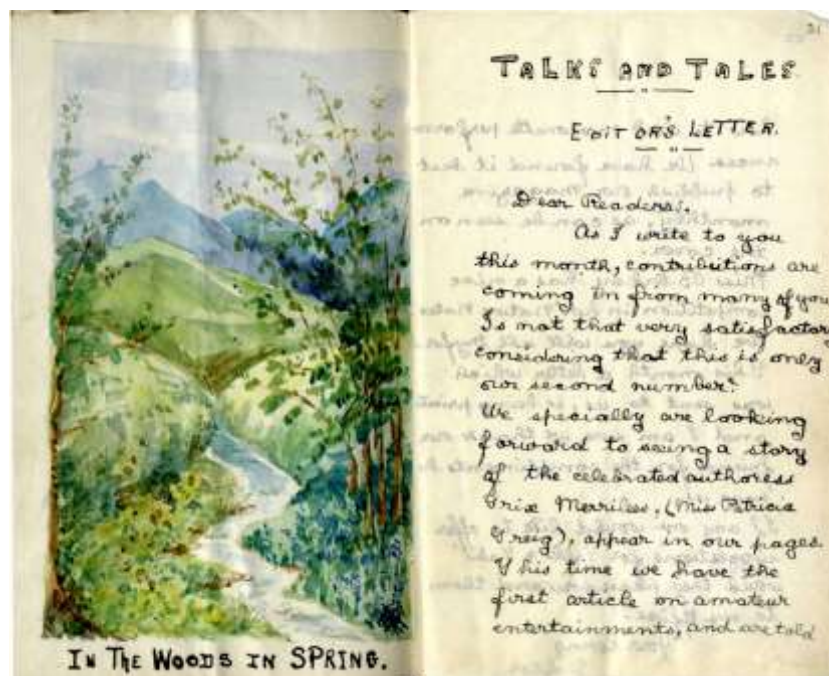 IN THE WOODS IN SPRING.
31
TALKS AND TALES
EDITOR'S LETTER.
Dear Readers,
As I write to you
this month, contributions are
coming in from many of you
Is not that very satisfactory
considering that this is only
our second number?
We specially are looking
forward to seeing a story
of the celebrated authoress
Trix Merriless, (Miss Patricia
Greig), appear in our pages.
This time we have the
first article on amateur
entertainments, and are told